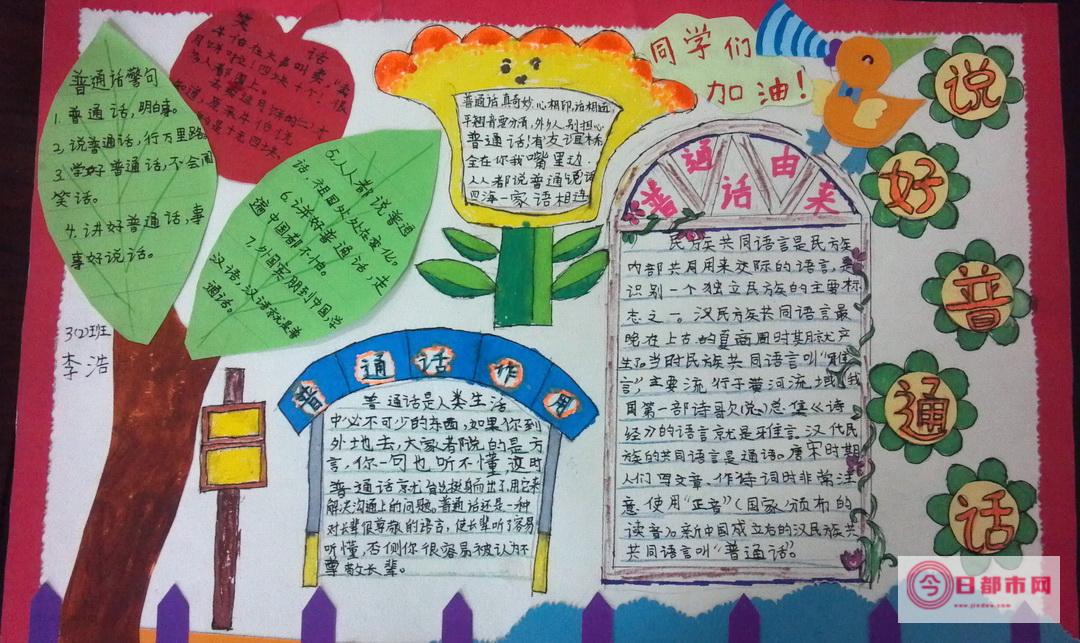 普通话警句
1.普通话,明白来。
2.说普通话,行万里路。
3.学好普通话,不会闹
笑话。
4.讲好普通话,事
事好说话。
笑 话
牛伯在大声叫卖:"卖
月饼啦!四块十个!"很
多人都围上
5.人人都说普通
话,祖国处处在变化。
6.讲好普通话,走
遍中国都不怕。
7.外国宾朋到中国,学
汉语,汉语就是普
通话。
3(2)班
李浩
普通话真奇妙,心相印,话相通,
手翘首要分清,外乡人别担心
普通话有友谊桥
全在你我嘴里边.
人人都说普通话
四海一家语相连
同学们
加油!
说好普通话
普通话由来
民族共同语言是民族
内部共同用来交际的语言,是
识别一个独立民族的主要标
志之一。汉民族共同语言最
晚在上古的夏商周时期就产
生了,当时民族共同语言叫"雅
言",主要流行于黄河流域,我
国第一部诗歌总集《诗
经》的语言就是雅言。汉代民
族的共同语言是通语。唐宋时期
人们写文章、作诗词时非常注
意使用"正音"(国家颁布的
读音)。新中国成立后的汉民族共
共同语言叫"普通话"。
普通话作用
普通话是人类生活
中必不可少的东西,如果你到
外地去,大家都说的是方
言,你一句也听不懂,这时
普通话就会挺身而出了,用它来
解决沟通上的问题。普通话还是一种
对长辈很尊敬的语言,使长辈听了容易
听懂,否侧你很容易被认为不
尊敬长辈。
今日都市网
www.jindew.com